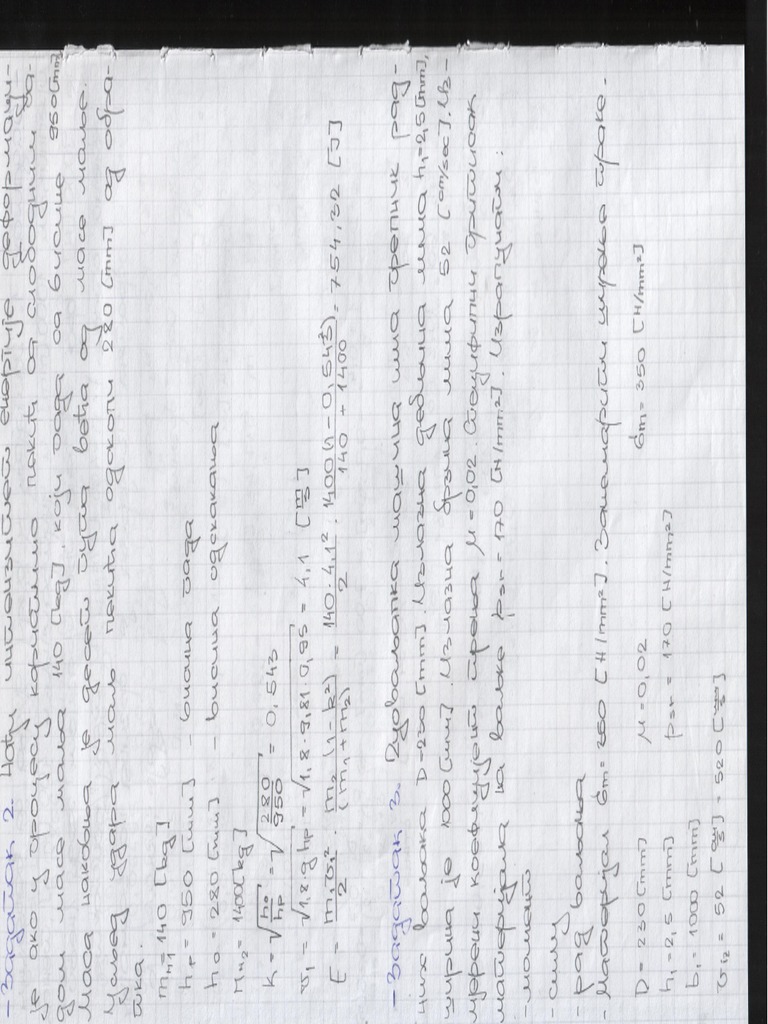 - Задатак 2. Наћи интензитет енергије деформаци-
је ако у процесу користимо чекић са слободним па-
дом масе маља 140 [kg]. који пада са висине 950 [mm]
Маса наковња је десет пута већа од масе маља.
Услед удара маљ чекића одскочи 280 [mm] од обра-
тка.
mм1 = 140 [kg]
hp = 950 [mm] - висина пада
ho = 280 [mm] - висина одскакања
MH2 = 1400 [kg]
K = √(ho/hp) = √(280/950) = 0,543
v1 = √(1,8·g·hp) = √(1,8·9,81·0,95) = 4,1 [m/s]
E = m1v1²/2 · m2(1-k²)/(m1+m2) = 140·4,1²/2 · 1400(1-0,543²)/(140+1400) = 754,32 [J]
- Задатак 3. Дуоваљачка машина има пречник рад-
них ваљака D=230 [mm]. Излазна дебљина лима h1=2,5 [mm],
ширина је 1000 [mm]. Излазна брзина лима 52 [cm/sec]. Из-
мерени коефицијент трења μ=0,02. Специфични притисак
материјала на ваљке psr=170 [H/mm²]. Израчунати:
- момент
- силу
- рад ваљања
- Материјал бm=350 [H/mm²]. Занемарити ширење траке.
D = 230 [mm] μ = 0,02 бm = 350 [H/mm²]
h1 = 2,5 [mm] psr = 170 [H/mm²]
b1 = 1000 [mm]
viz = 52 [cm/s] = 520 [mm/s]